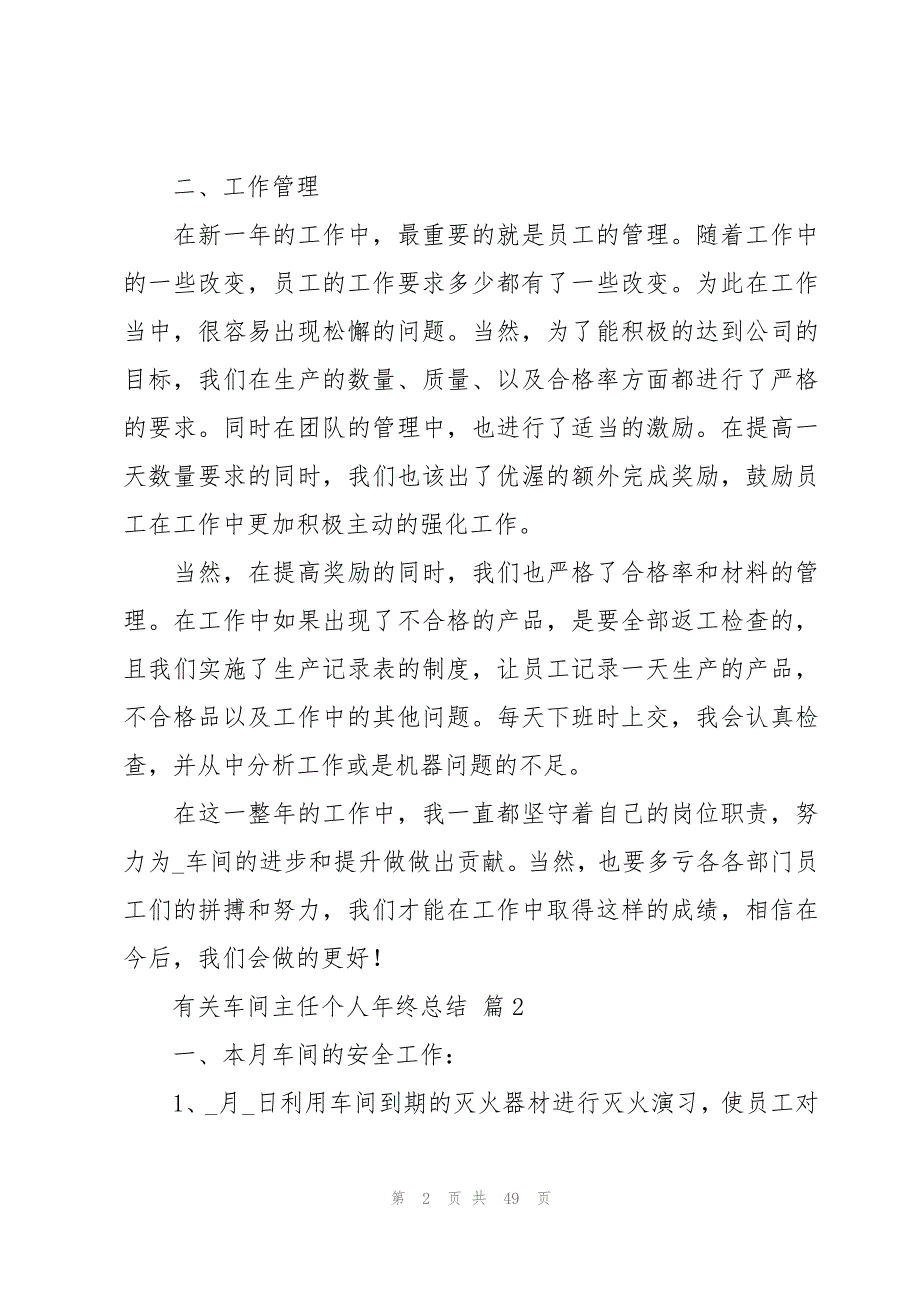 二、工作管理
在新一年的工作中，最重要的就是员工的管理。随着工作中
的一些改变，员工的工作要求多少都有了一些改变。为此在工作
当中，很容易出现松懈的问题。当然，为了能积极的达到公司的
目标，我们在生产的数量、质量、以及合格率方面都进行了严格
的要求。同时在团队的管理中，也进行了适当的激励。在提高一
天数量要求的同时，我们也该出了优渥的额外完成奖励，鼓励员
工在工作中更加积极主动的强化工作。
当然，在提高奖励的同时，我们也严格了合格率和材料的管
理。在工作中如果出现了不合格的产品，是要全部返工检查的，
且我们实施了生产记录表的制度，让员工记录一天生产的产品，
不合格品以及工作中的其他问题。每天下班时上交，我会认真检
查，并从中分析工作或是机器问题的不足。
在这一整年的工作中，我一直都坚守着自己的岗位职责，努
力为_车间的进步和提升做做出贡献。当然，也要多亏各各部门员
工们的拼搏和努力，我们才能在工作中取得这样的成绩，相信在
今后，我们会做的更好！
有关车间主任个人年终总结 篇2
一、本月车间的安全工作：
1、_月_日利用车间到期的灭火器材进行灭火演习，使员工对
第 2 页 共 49 页